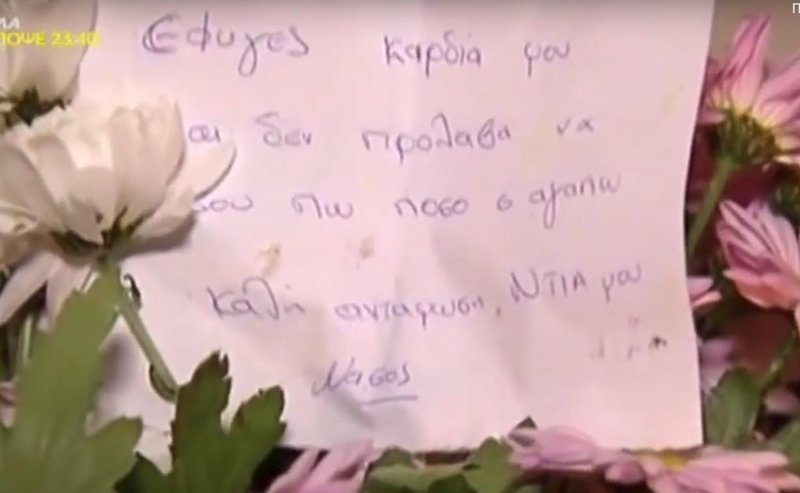 ΑΠΟΨΕ 23:40
Εφυγες καρδιά μου
και δεν προλαβα να
σου πω ποσο σ αγαπω
Καλή ανταμωση, ΝΤΙΑ μου
Νασος